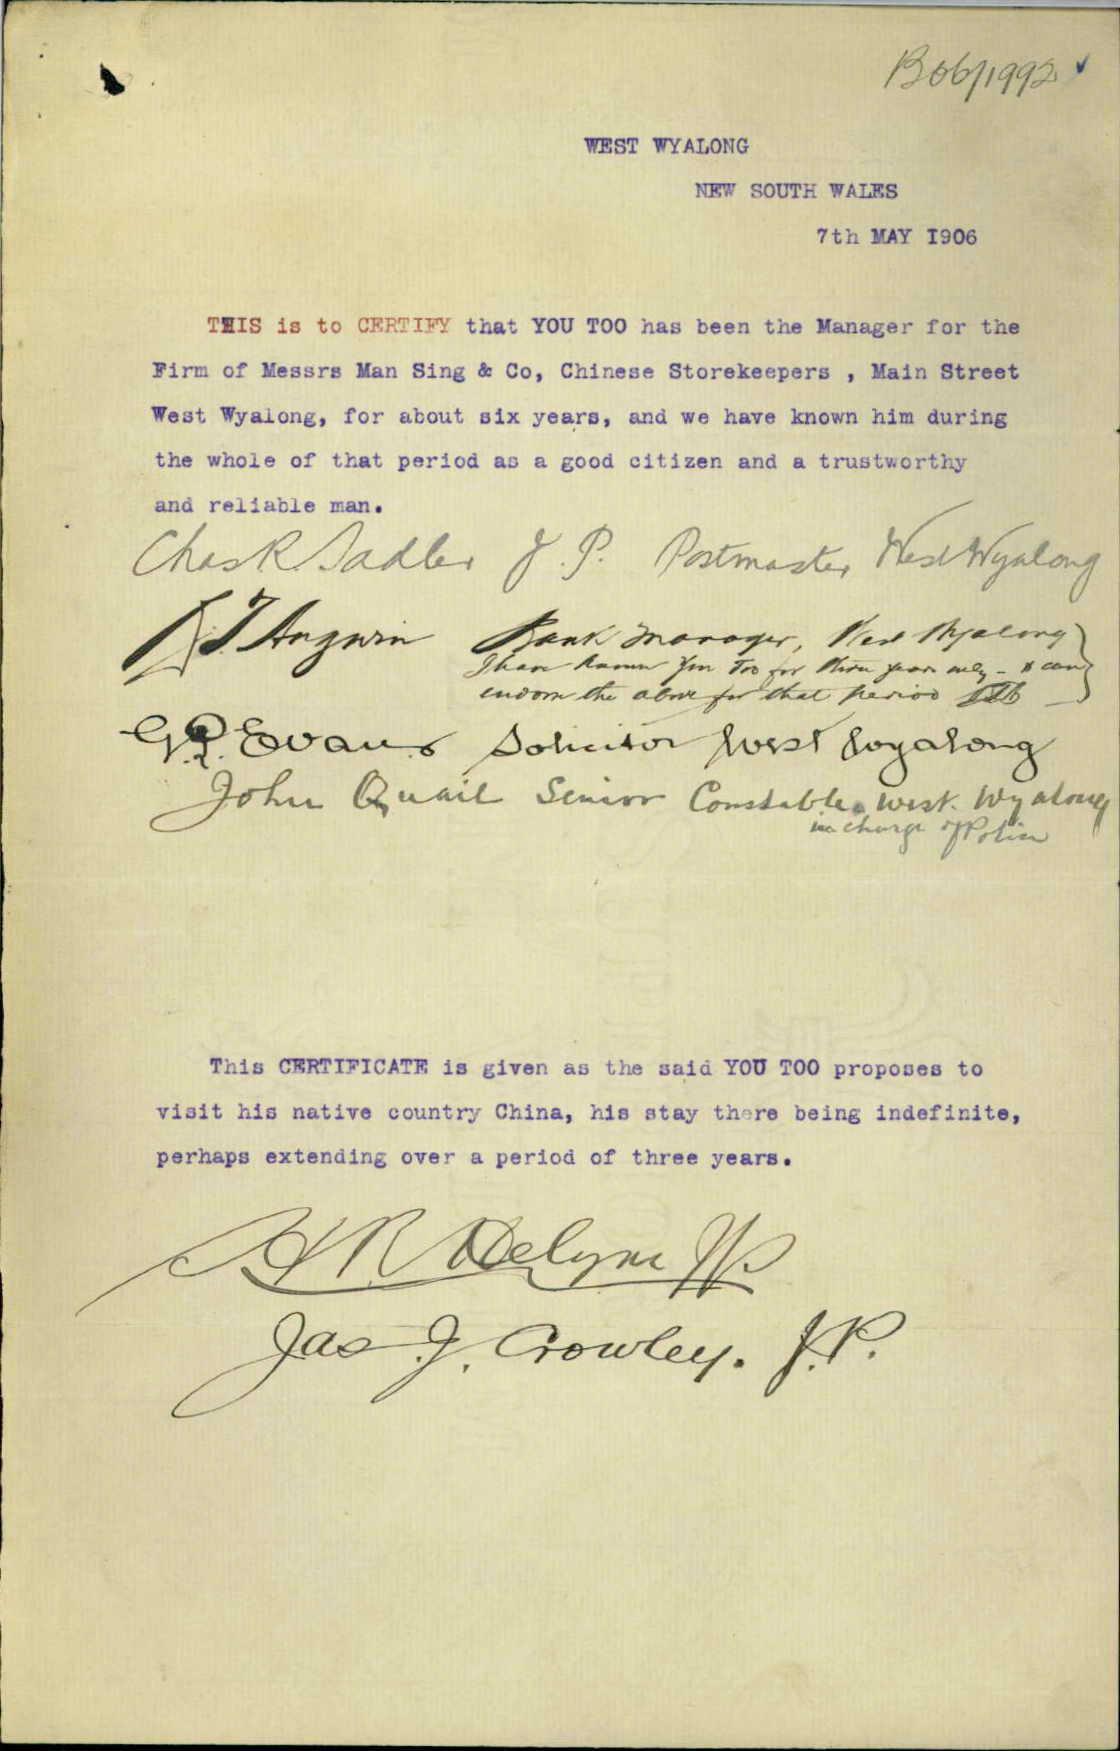 B06/1992
WEST WYALONG
NEW SOUTH WALES
7th MAY I906
THIS is to CERTIFY that YOU TOO has been the Manager for the
Firm of Messrs Man Sing & Co, Chinese Storekeepers , Main Street
West Wyalong, for about six years, and we have known him during
the whole of that period as a good citizen and a trustworthy
and reliable man.
Chas R. Sadler J.P. Postmaster West Wyalong
T Angwin Bank Manager, West Wyalong
I have known You Too for three years only - & can
endorse the above for that period
G.P. Evans Solicitor West Wyalong
John Quail Senior Constable West Wyalong
in charge of Police
This CERTIFICATE is given as the said YOU TOO proposes to
visit his native country China, his stay there being indefinite,
perhaps extending over a period of three years.
JP
Jas. J. Crowley. J.P.